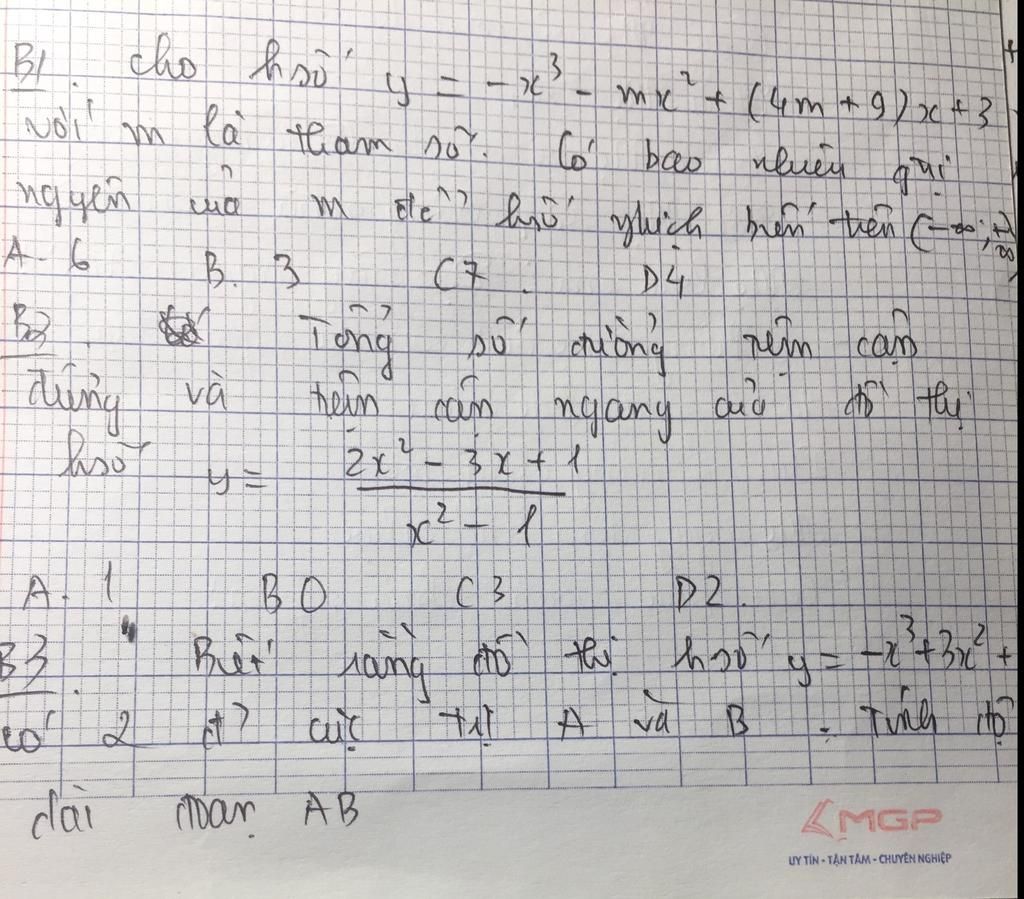 B1. cho hsố y = -x³ - mx² + (4m + 9)x + 3
với m là tham số. Có bao nhiêu gtrị
nguyên của m để hsố nghịch biến trên (-∞; +∞)
A. 6 B. 3 C 7. D 4
B2. Tổng số đường tiệm cận
đứng và tiệm cận ngang của đồ thị
hsố y = \frac{2x² - 3x + 1}{x² - 1}
A. 1 B 0 C 3 D 2.
B3. Biết rằng đồ thị hsố y = -x³ + 3x² +
có 2 đ' cực trị A và B. Tính độ
dài đoạn AB
MGP
UY TÍN - TẬN TÂM - CHUYÊN NGHIỆP